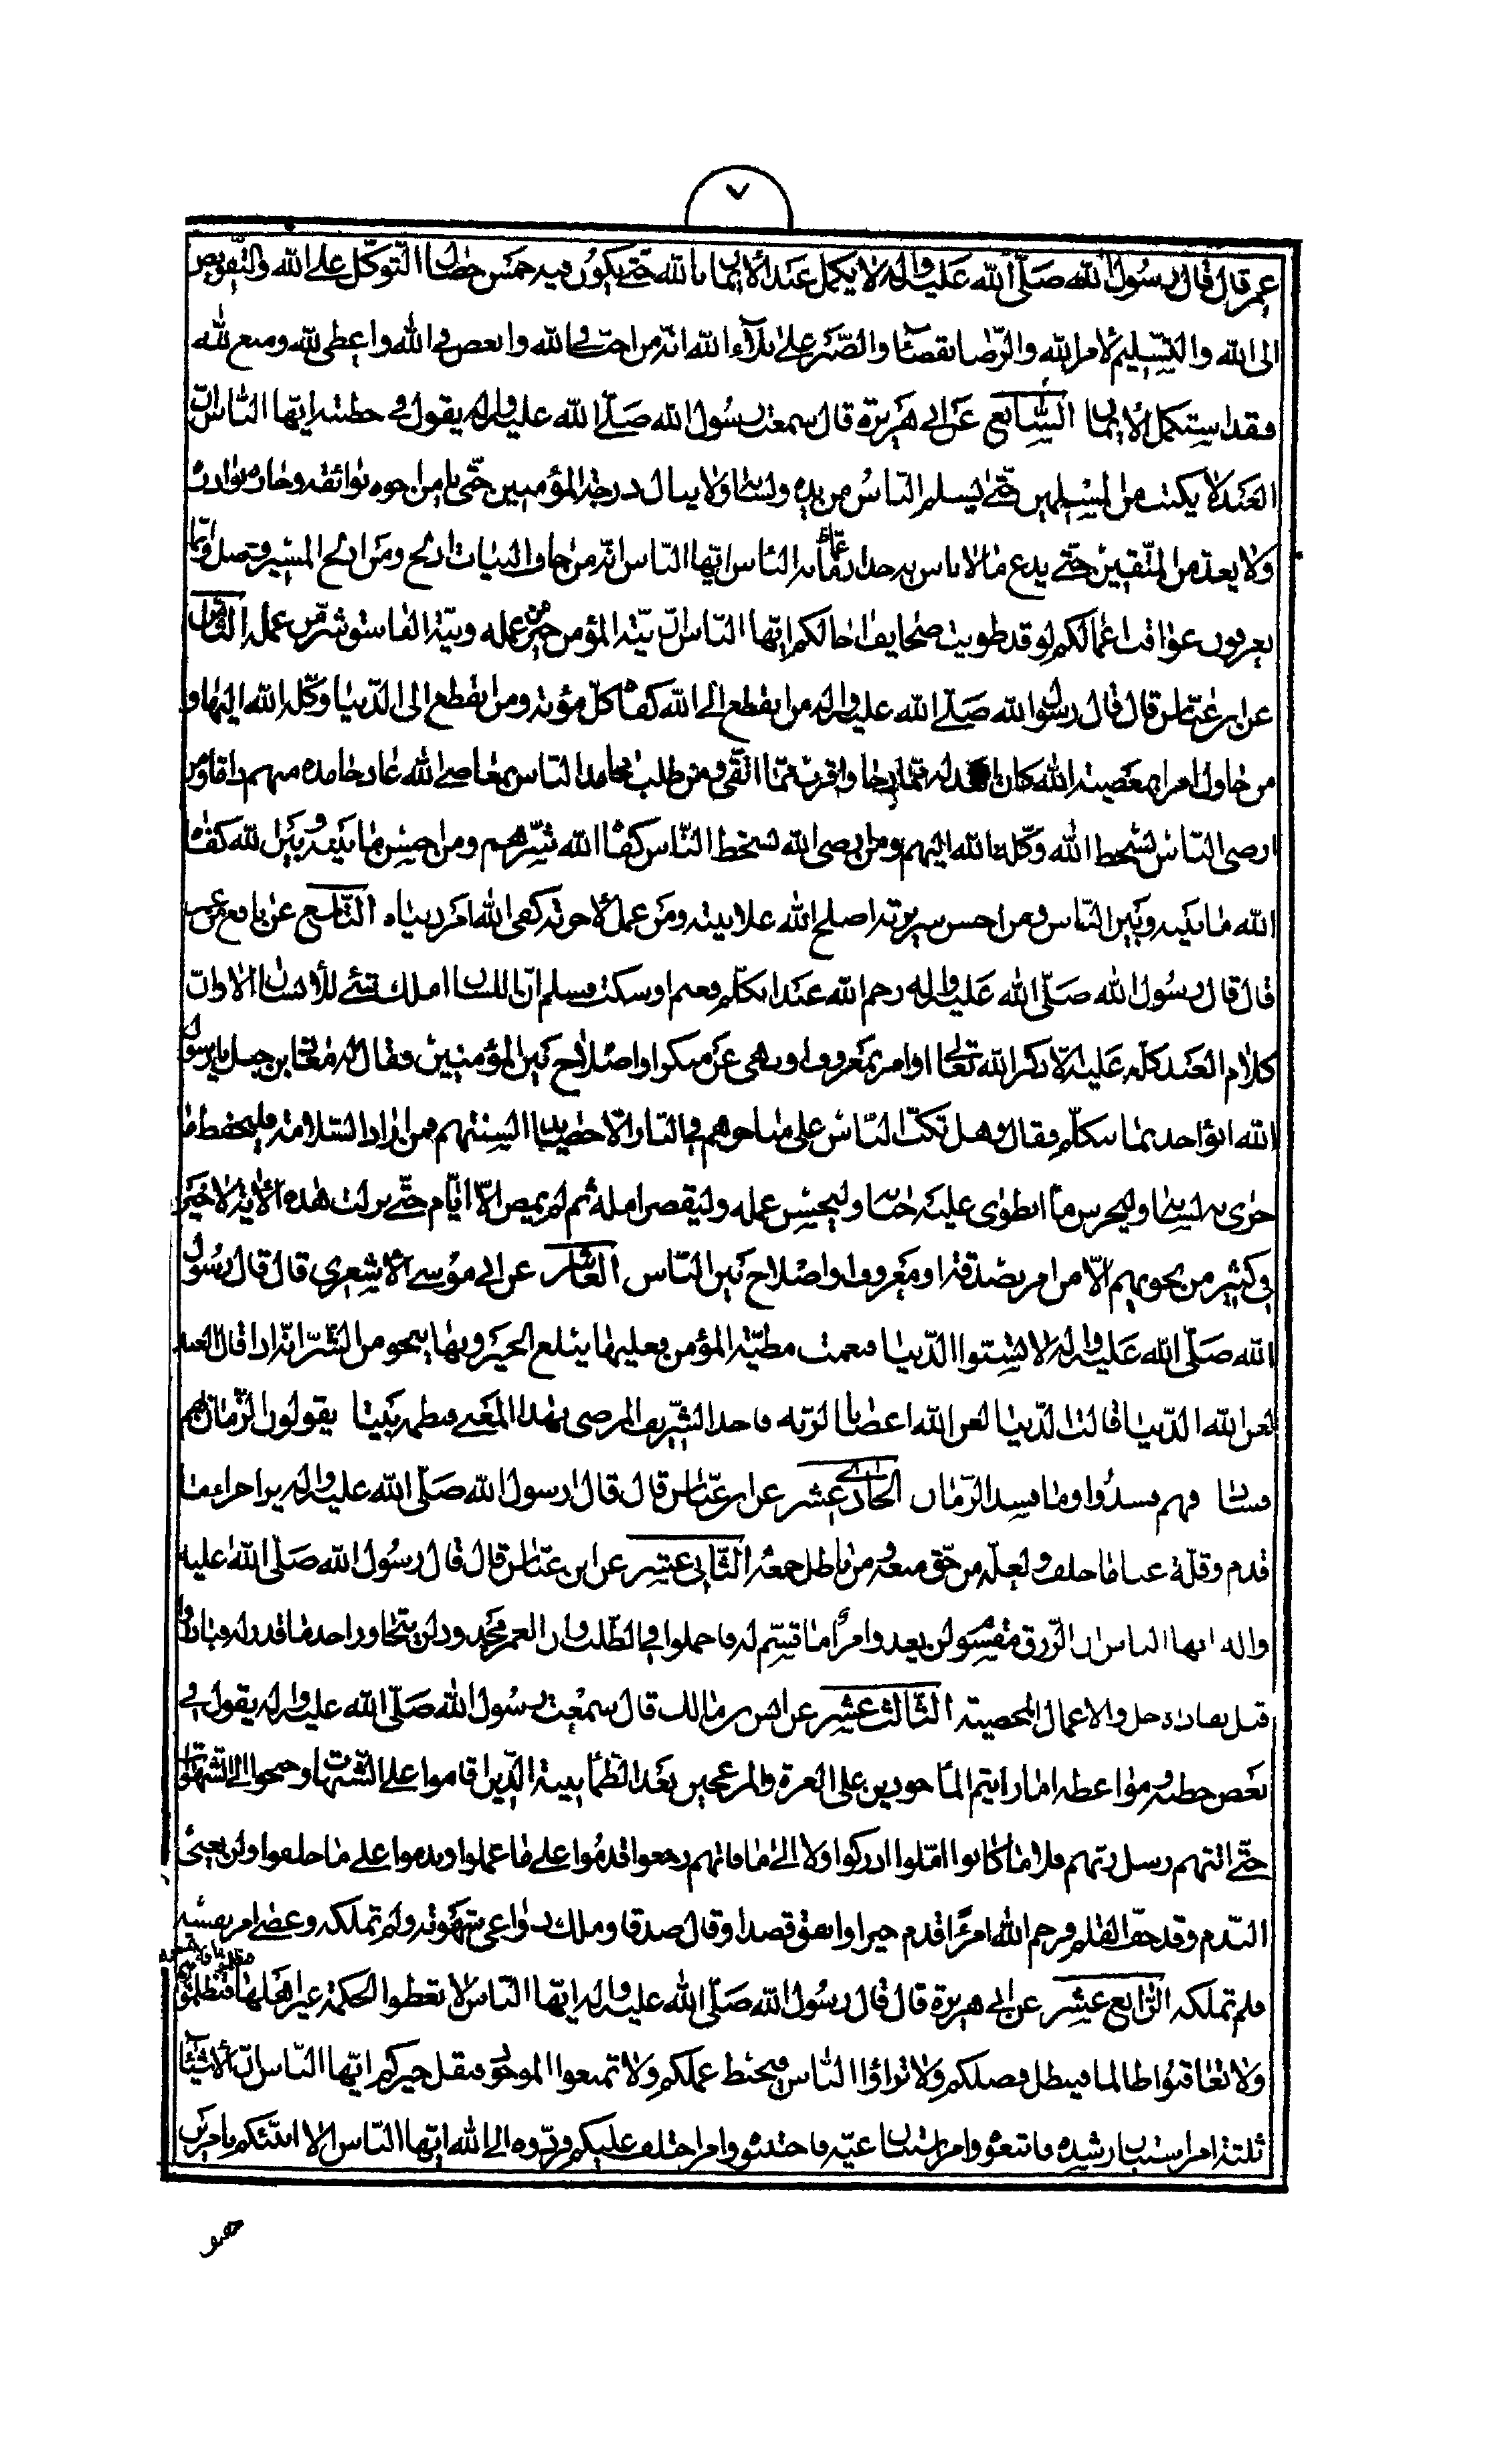 ٧
عمر قال قال رسول الله صلّى الله عليه واله لا يكمل عبد الايمان بالله حتّى يكون فيه خمس خصال التوكّل على الله والتفويض
الى الله والتسليم لامر الله والرّضا بقضاء الله والصّبر على بلاء الله انه من احبّ في الله وابغض في الله واعطى لله ومنع لله
فقد استكمل الايمان السّابع عن ابي هريرة قال سمعت رسول الله صلّى الله عليه واله يقول في خطبته ايّها النّاس انّ
العبد لا يكتب من المسلمين حتّى يسلم النّاس من يده ولسانه ولا ينال درجة المؤمنين حتّى يامن اخوه بوائقه وجاره بوادره
ولا يعدّ من المتّقين حتّى يدع ما لا باس به حذارا عمّا به الباس ايّها النّاس انّه من خاف البيات ادلج ومن ادلج المسير وصل وانّما
تعرفون عواقب اعمالكم لو قد طويت صحايف اجالكم ايّها النّاس انّ نيّة المؤمن خير من عمله ونيّة الفاسق شرّ من عمله الثّامن
عن ابن عبّاس قال قال رسول الله صلّى الله عليه واله من انقطع الى الله كفاه كلّ مؤنة ومن انقطع الى الدّنيا وكّله الله اليها و
من حاول امرا بمعصية الله كان ابعد له ممّا رجا واقرب ممّا اتّقى ومن طلب محامد النّاس بمعاصي الله عاد حامده منهم ذامّا ومن
ارضى النّاس بسخط الله وكّله الله اليهم ومن ارضى الله بسخط النّاس كفاه الله شرّهم ومن احسن ما بينه وبين الله كفاه
الله ما بينه وبين النّاس ومن احسن سريرته اصلح الله علانيته ومن عمل لاخرته كفى الله امر دنياه التّاسع عن نافع عن ابن عمر
قال قال رسول الله صلّى الله عليه واله رحم الله عبدا تكلّم فغنم او سكت فسلم انّ اللسان املك شئ للانسان الا وانّ
كلام العبد كلّه عليه الّا ذكر الله تعالى او امر بمعروف او نهى عن منكر او اصلاح بين المؤمنين فقال له معاذ بن جبل يا رسول
الله انؤاخذ بما نتكلّم فقال وهل تكبّ النّاس على مناخرهم في النار الّا حصايد السنتهم فمن اراد السّلامة فليحفظ ما
جرى به لسانه وليحرس ما انطوى عليه جنانه وليحسن عمله وليقصر امله ثم لم يمض الّا ايّام حتّى نزلت هذه الاية لا خير
في كثير من نجويهم الّا من امر بصدقة او معروف او اصلاح بين النّاس العاشر عن ابي موسى الاشعري قال قال رسول
الله صلّى الله عليه واله لا تسبّوا الدّنيا فنعمت مطيّة المؤمن فعليها يبلغ الخير وبها ينجو من الشّر انّه اذا قال العبد
لعن الله الدّنيا قالت الدّنيا لعن الله اعصانا لربّه فاخذ الشّريف المرضى بهذا المعنى فنظمه بيتا يقولون الزّمان بهم
فساد فهم فسدوا وما فسد الزّمان الحادي عشر عن ابن عبّاس قال قال رسول الله صلّى الله عليه واله يرا جزاء ما
قدم وقلّة غنا ما خلف ولعلّه من حقّ منعه ومن باطل جمعه الثّاني عشر عن ابن عبّاس قال قال رسول الله صلّى الله عليه
واله ايها الناس ان الرّزق مقسوم لن يعدو امرأ ما قسّم له فاجملوا في الطّلب وان العمر محدود لن يتجاوز احد ما قدر له فبادروا
قبل نفاد الاجل والاعمال المحصية الثّالث عشر عن انس بن مالك قال سمعت رسول الله صلّى الله عليه واله يقول في
بعض خطبه ومواعظه اما رايتم الماخوذين على الغرة والمزعجين بعد الطّمانينة الّذين اقاموا على الشّبهات وجنحوا الى الشّهوات
حتّى اتتهم رسل ربّهم فلا ما كانوا امّلوا ادركوا ولا الى ما فاتهم رجعوا قدموا على ما عملوا وندموا على ما خلفوا ولن يغني
النّدم وقد جفّ القلم فرحم الله امرءا قدم خيرا وانفق قصدا وقال صدقا وملك دواعي شهوته ولم تملكه وعصى امر نفسه
فلم تملكه الرّابع عشر عن ابي هريرة قال قال رسول الله صلّى الله عليه واله ايّها النّاس لا تعطوا الحكمة غير اهلها فتظلموها
ولا تعاقبوا ظالما فيبطل فضلكم ولا تراؤا النّاس فيحبط عملكم ولا تمنعوا الموجود فيقل خيركم ايّها النّاس انّ الاشياء
ثلثة امر استبان رشده فاتبعوه وامر استبان غيّه فاجتنبوه وامر اختلف عليكم فردّوه الى الله ايّها النّاس الا انبّئكم بامرين